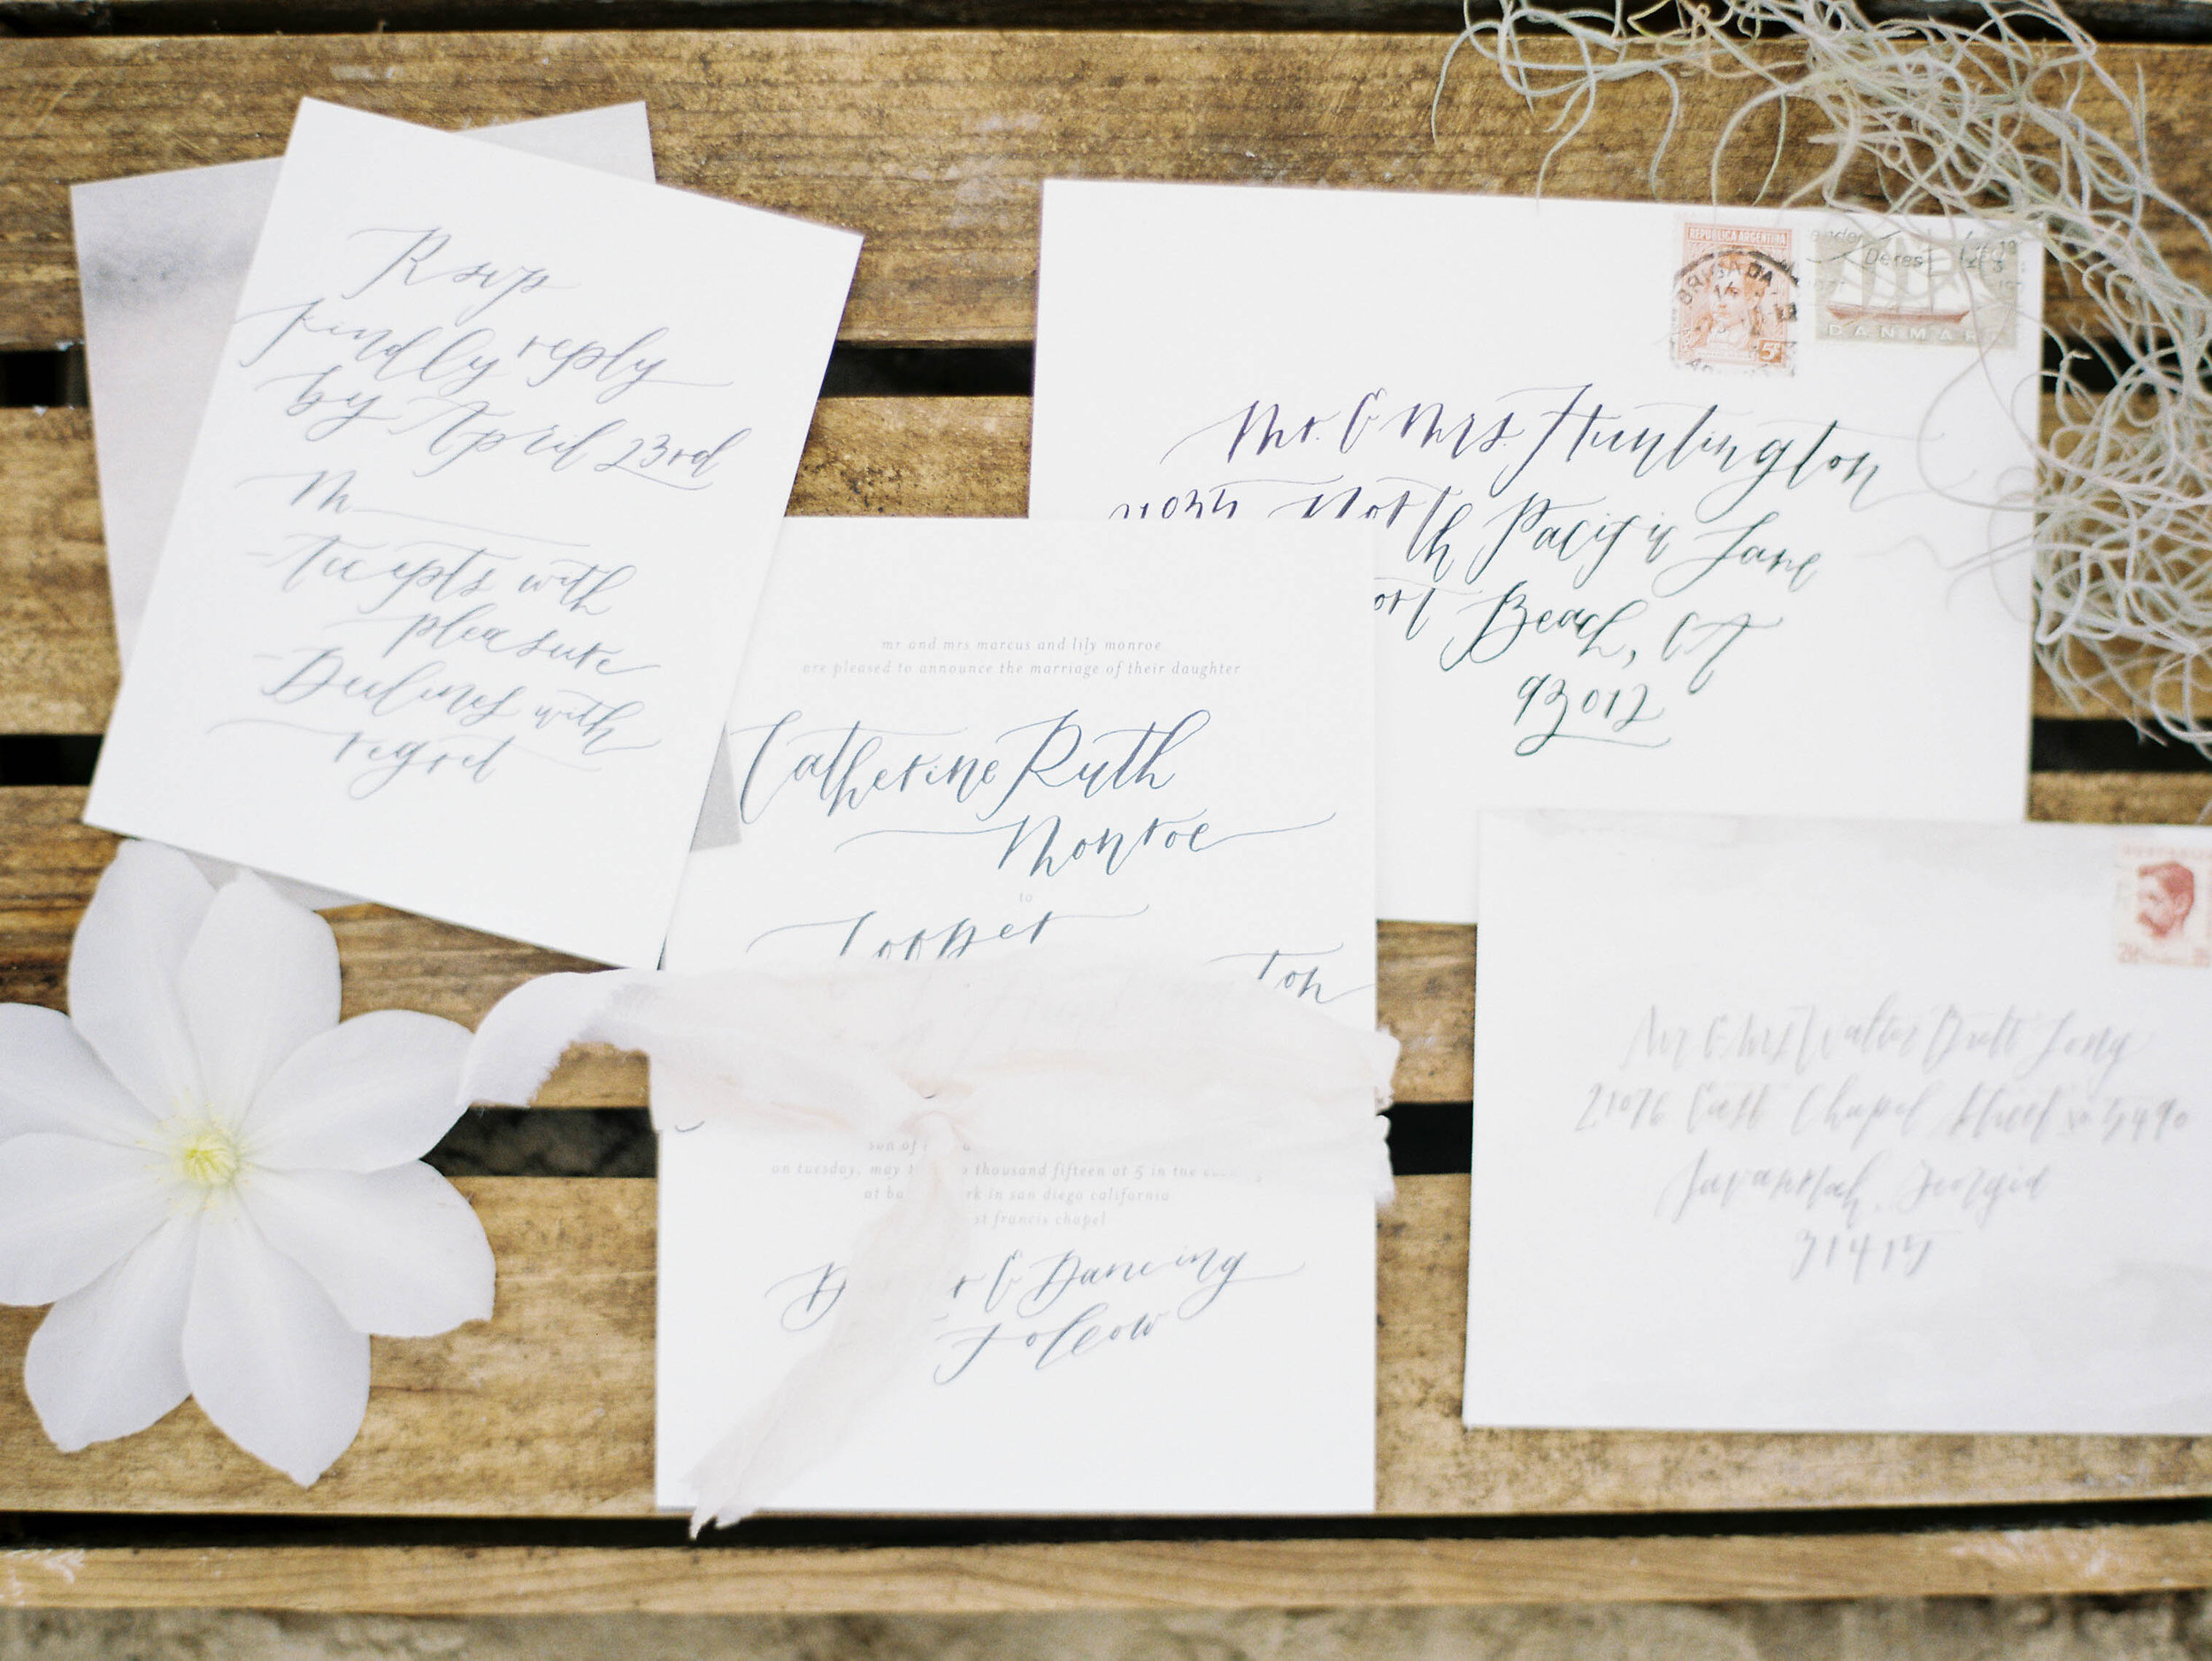 Rsvp
kindly reply
by April 23rd
M
Accepts with
pleasure
Declines with
regret
REPUBLICA ARGENTINA
5
DANMAR
Mr. & Mrs. Huntington
North Pacific Lane
Beach, CA
93012
mr and mrs marcus and lily monroe
are pleased to announce the marriage of their daughter
Catherine Ruth
Monroe
to
son of
on tuesday, may thousand fifteen at 5 in the
at in san diego california
st francis chapel
& Dancing
Follow
Mr & Mrs Walter Brett Long
21076 East Chapel Street
Savannah, Georgia